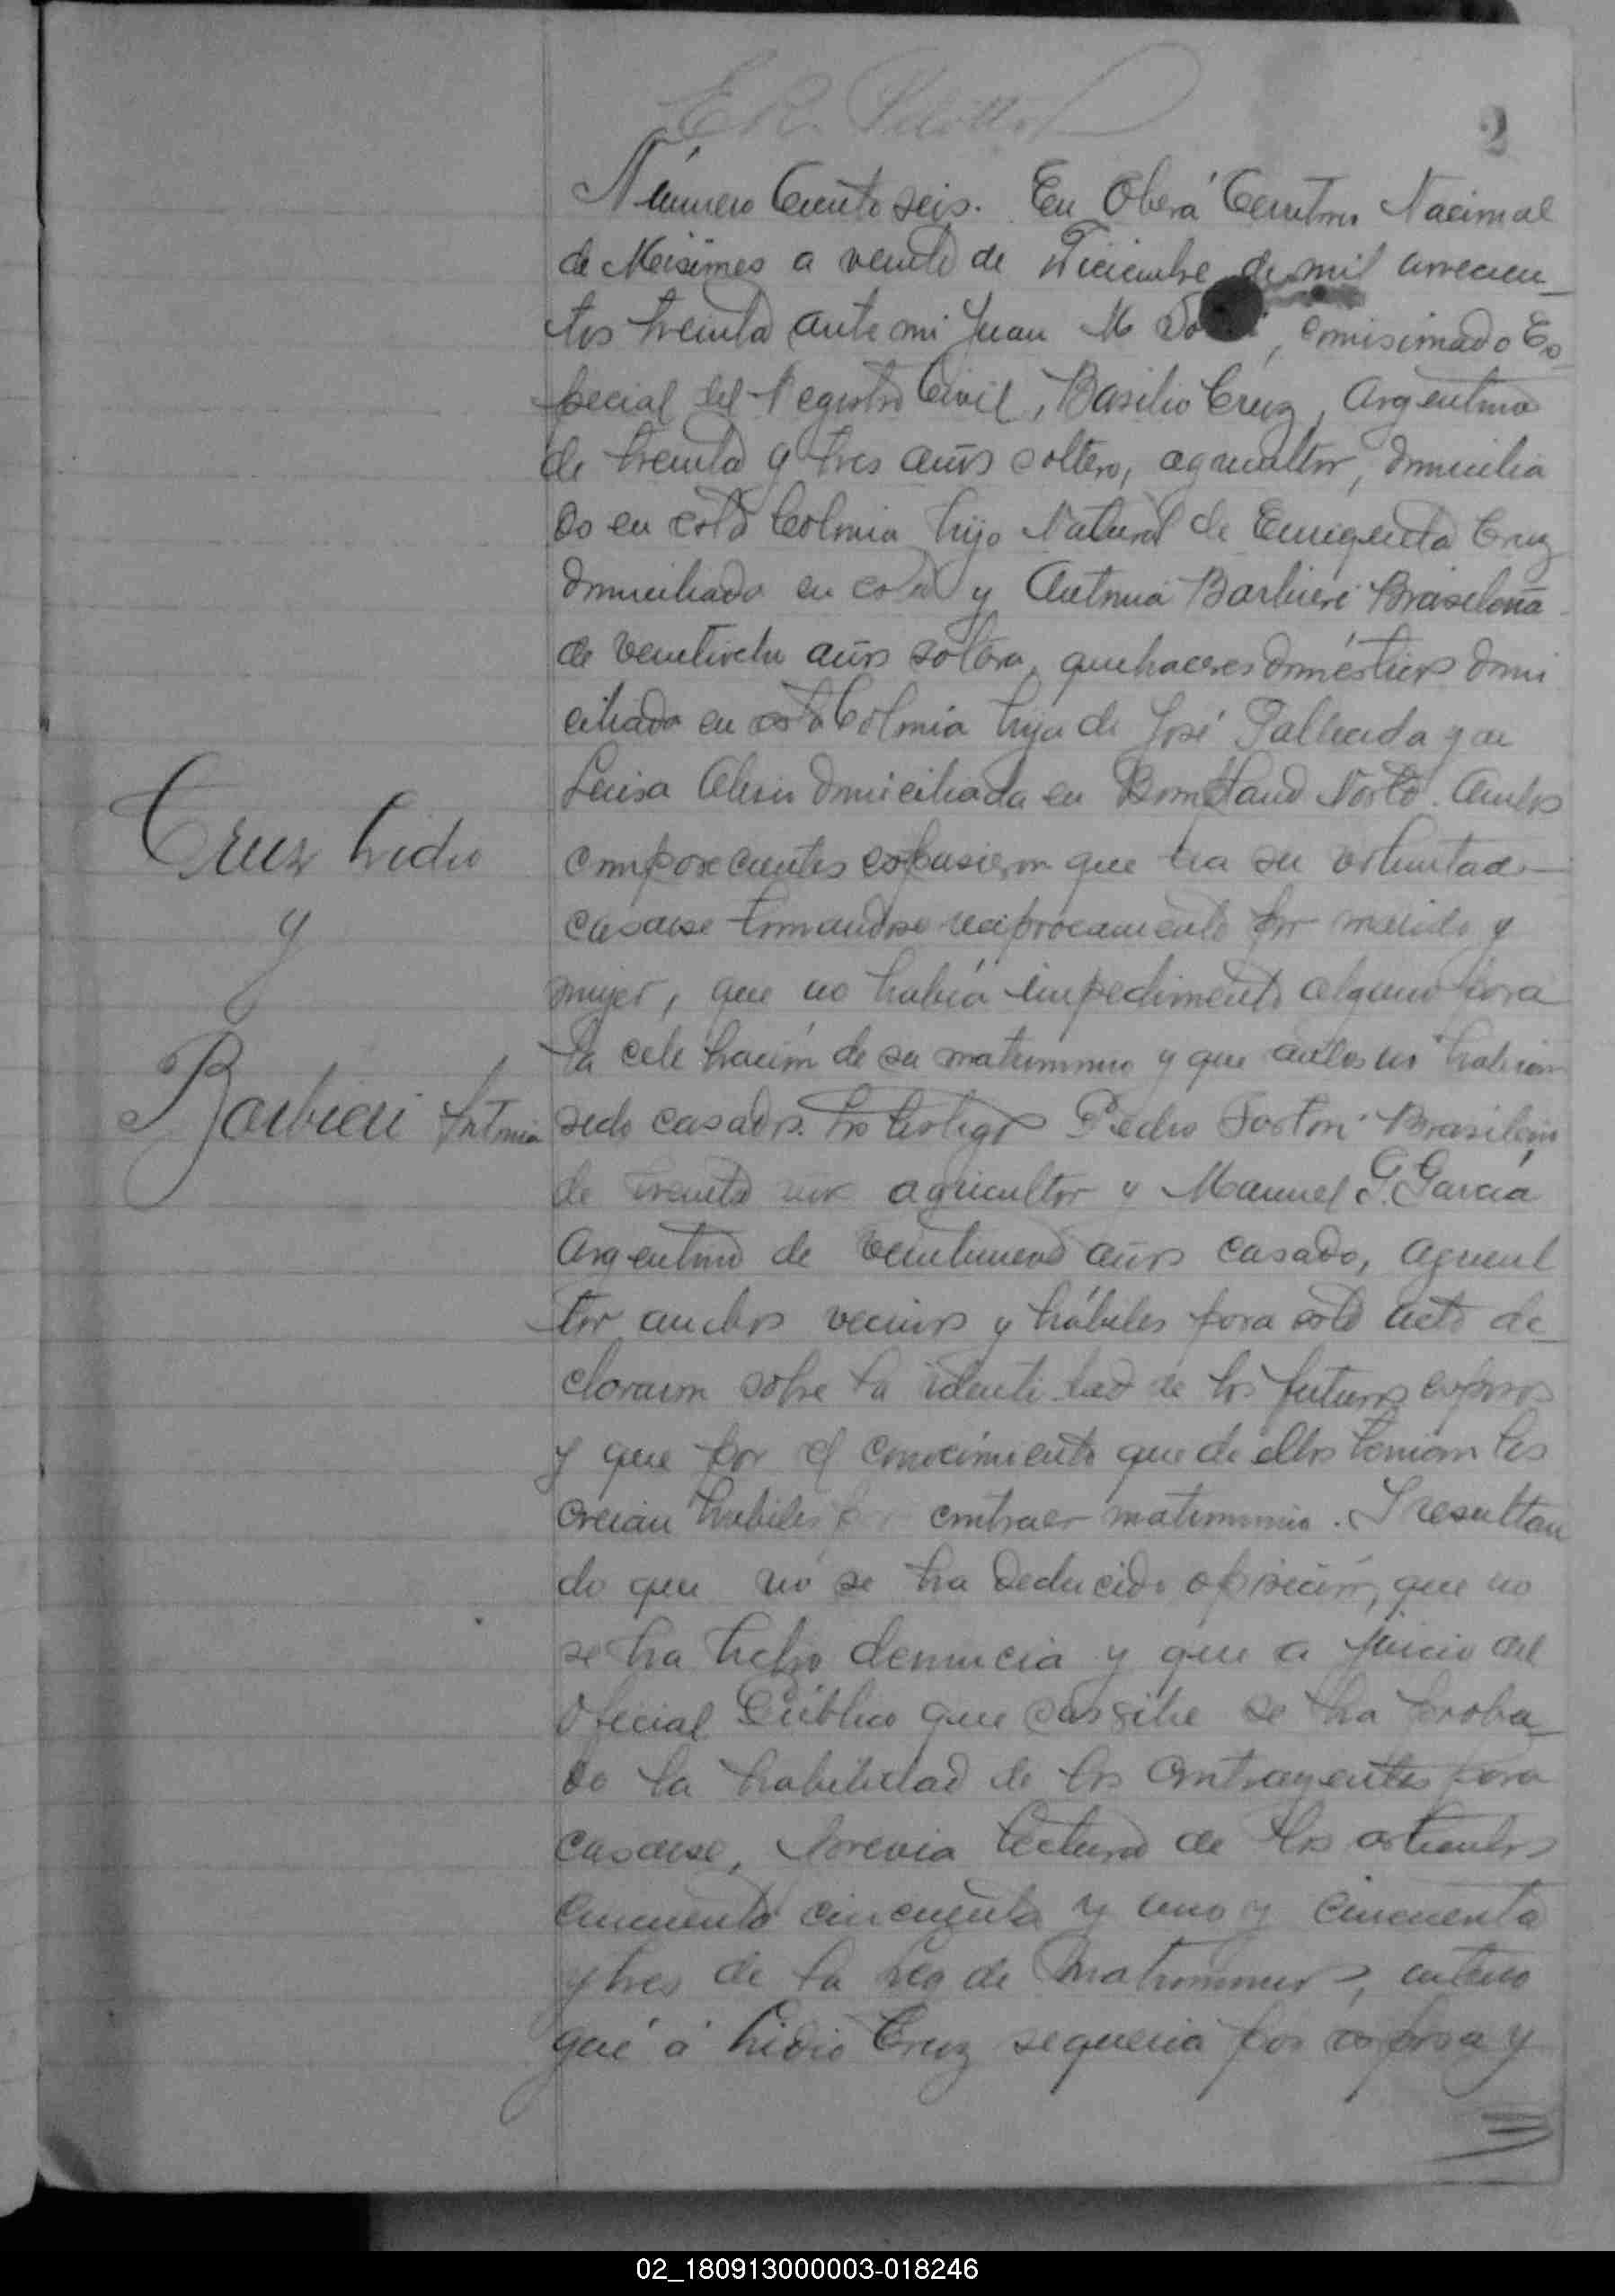 2
Número Ciento seis. En Oberá Territorio Nacional
de Misiones a veinte de Diciembre de mil novecien
tos treinta ante mi Juan M, comisionado Es
pecial del Registro Civil, Basilio Cruz, Argentino
de treinta y tres años soltero, agricultor, domicilia
do en esta Colonia hijo Natural de Cruz
domiciliada en esta y Antonia Barbieri Brasileña
de años soltera, quehaceres domésticos domi
ciliada en esta Colonia hija de José y de
Luisa domiciliada en Bompland Norte. Ambos
comparecientes expusieron que era su voluntad
casarse tomandose reciprocamente por marido y
mujer, que no había impedimento alguno para
Cruz Lidio
la celebración de su matrimonio y que antes no habian
y
Barbieri Antonia
sido casados. Los testigos Pedro Brasileño
de treinta agricultor y Manuel G. García
Argentino de veintinueve años casado, agricul
tor ambos vecinos y hábiles para este acto de
clararon sobre la identidad de los futuros esposos
y que por el conocimiento que de ellos tenian los
creian habiles contraer matrimonio. Y resultan
do que no se ha deducido oposición, que no
se ha hecho denuncia y que a juicio del
Oficial Público que suscribe se ha proba
do la habilidad de los contrayentes para
casarse, previa lectura de los articulos
cincuenta cincuenta y uno y cincuenta
y tres de la Ley de Matrimonios, interro
gué á Lidio Cruz si queria por esposa y
02_180913000003-018246